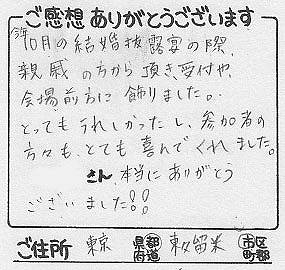 ご感想ありがとうございます
今年10月の結婚披露宴の際、
親戚の方から頂き、受付や、
会場前方に飾りました。
とってもうれしかったし、参加者の
方々も、とても喜んでくれました。
さん、本当にありがとう
ございました!!
ご住所 東京 都道府県 東久留米 市区町郡